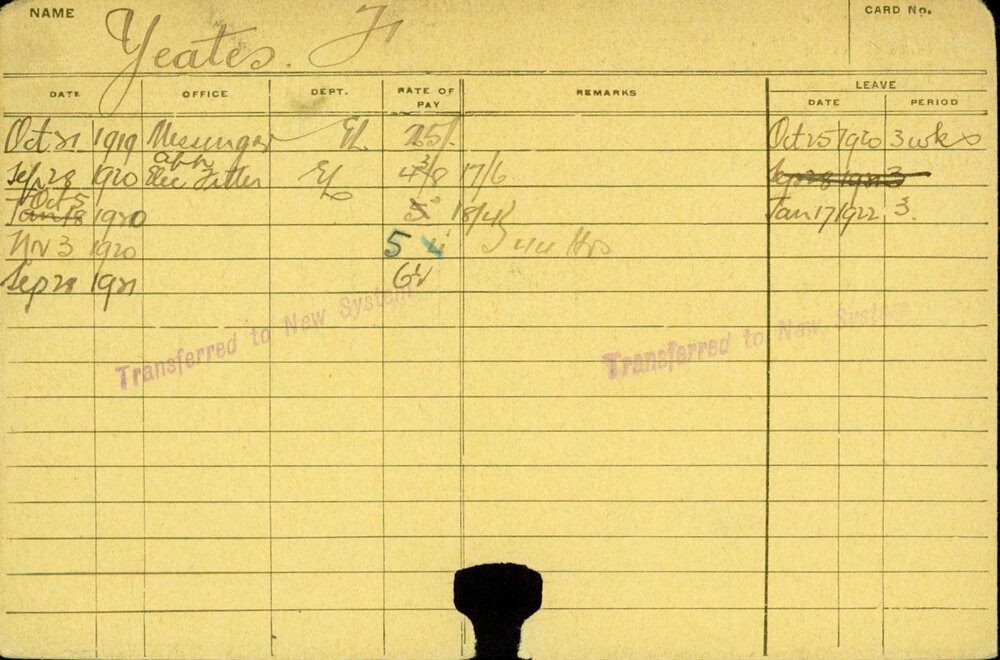 NAME Yeates. F CARD No.
DATE OFFICE DEPT. RATE OF PAY REMARKS LEAVE
DATE PERIOD
Oct 21 1919 Messenger El. 25/- Oct 25 1920 3 wks
Sep 28 1920 app Elec Fitter El 17/6 Sep 28 1921 3
Oct 5
Jan 18 1920 18/4 Jan 17 1922 3
Nov 3 1920 5 44 Hrs
Sep 28 1921
Transferred to New System Transferred to New System